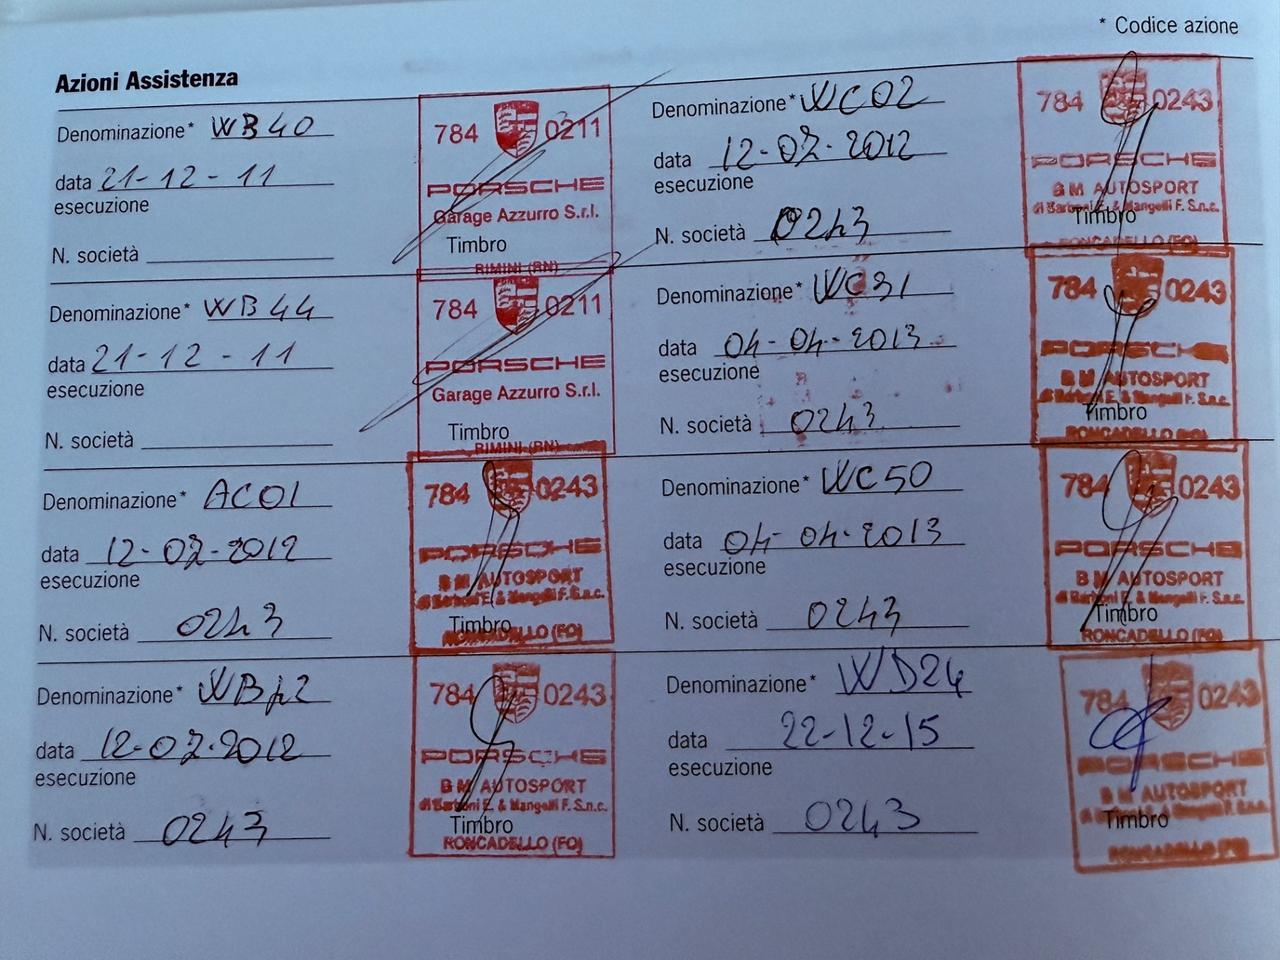 * Codice azione
Azioni Assistenza
Denominazione* WB40
data 21-12-11
esecuzione
N. società
784 0211
PORSCHE
Garage Azzurro S.r.l.
Timbro
RIMINI (RN)
Denominazione* WB44
data 21-12-11
esecuzione
N. società
784 0211
PORSCHE
Garage Azzurro S.r.l.
Timbro
RIMINI (RN)
Denominazione* AC01
data 12-07-2012
esecuzione
N. società 0243
784 0243
PORSCHE
BM AUTOSPORT
di Barboni E. & Mangelli F. S.n.c.
Timbro
RONCADELLO (FO)
Denominazione*
data 12-07-2012
esecuzione
N. società 0243
784 0243
PORSCHE
BM AUTOSPORT
di Barboni E. & Mangelli F. S.n.c.
Timbro
RONCADELLO (FO)
Denominazione* WC02
data 12-07-2012
esecuzione
N. società 0243
784 0243
PORSCHE
BM AUTOSPORT
di Barboni E. & Mangelli F. S.n.c.
Timbro
RONCADELLO (FO)
Denominazione* WC31
data 04-04-2013
esecuzione
N. società 0243
784 0243
PORSCHE
BM AUTOSPORT
di Barboni E. & Mangelli F. S.n.c.
Timbro
RONCADELLO (FO)
Denominazione* WC50
data 04-04-2013
esecuzione
N. società 0243
784 0243
PORSCHE
BM AUTOSPORT
di Barboni E. & Mangelli F. S.n.c.
Timbro
RONCADELLO (FO)
Denominazione* WD24
data 22-12-15
esecuzione
N. società 0243
784 0243
PORSCHE
BM AUTOSPORT
di Barboni E. & Mangelli F. S.n.c.
Timbro
RONCADELLO (FO)